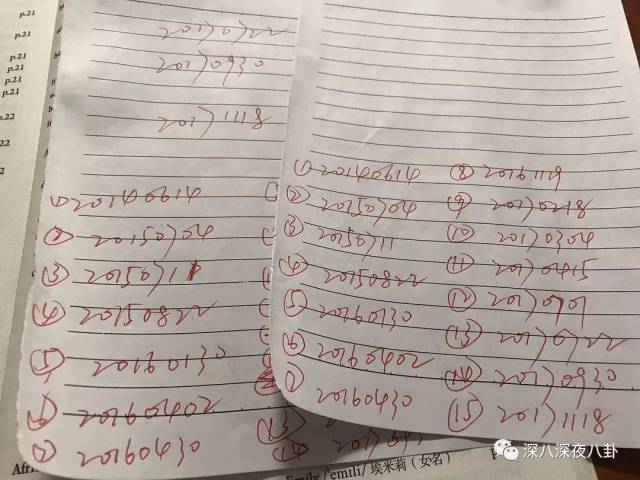 p.21
p.21
p.21
p.21
p.21
p.21
p.22
p.22
20170722
20170930
20171118
① 20140614
② 20150704
③ 20150711
④ 20150822
⑤ 20160130
⑥ 20160402
⑦ 20160430
⑬
⑭
① 20140614
② 20150704
③ 20150711
④ 20150822
⑤ 20160130
⑥ 20160402
⑦ 20160430
⑧ 20161119
⑨ 20170218
⑩ 20170304
⑪ 20170415
⑫ 20170701
⑬ 20170722
⑭ 20170930
⑮ 20171118
Emily /emili/ 埃米莉（女名）
深八深夜八卦